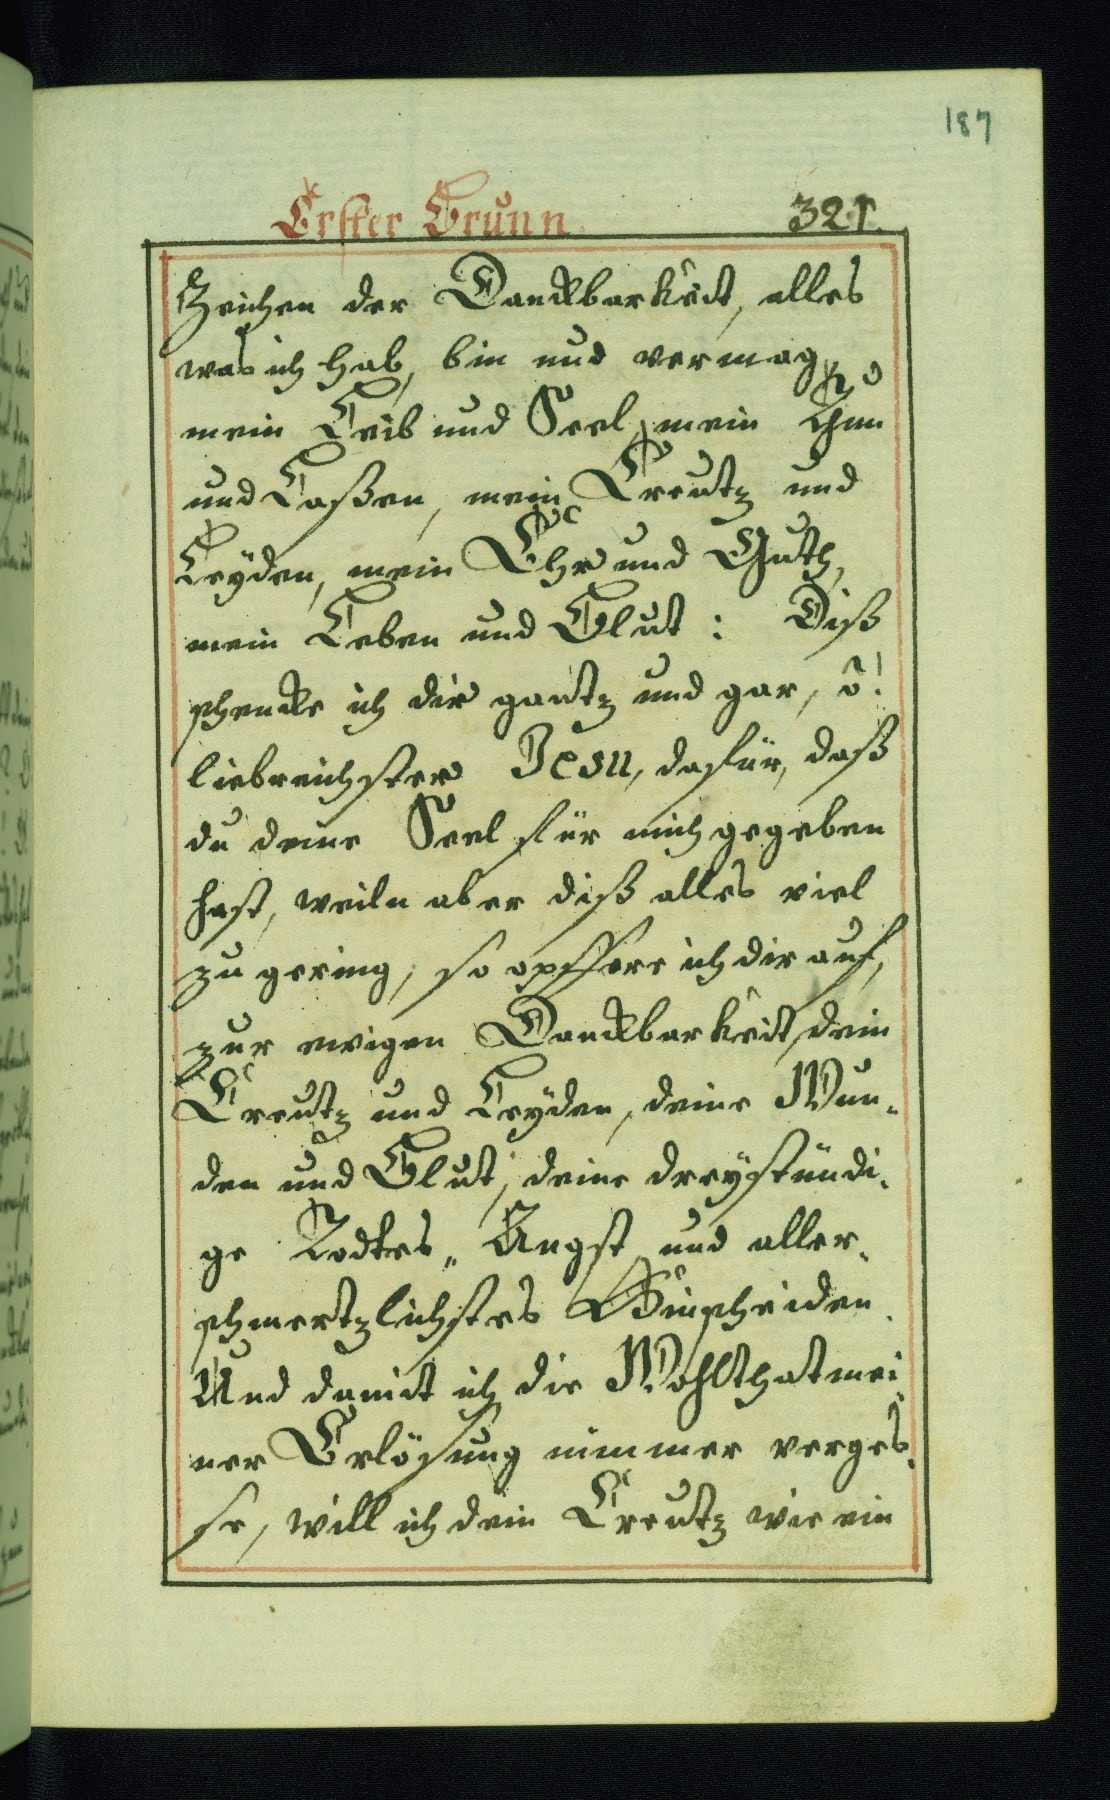 187
Erster Brunn. 321.
Zeichen der Danckbarkeit, alles
was ich hab, bin und vermag,
mein Leib und Seel, mein Thun
und Laßen, mein Creutz und
Leÿden, mein Ehr und Guth,
mein Leben und Blut: Diß
schencke ich dir gantz und gar, ô!
liebreichster Jesu, dafür, daß
du deine Seel für mich gegeben
hast, weiln aber diß alles viel
zu gering, so opffere ich dir auf,
zur ewigen Danckbarkeit, dein
Creutz und Leÿden, deine Wun-
den und Blut, deine dreÿstündi-
ge Todtes-Angst und aller-
schmertzlichstes Hinscheiden.
Und damit ich die Wohlthat mei-
ner Erlösung nimmer verges-
se, will ich dein Creutz wie ein